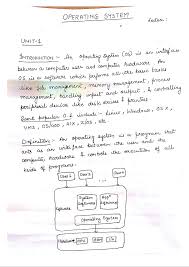 OPERATING SYSTEM
UNIT-1
INTRODUCTION - An Operating System (OS) is an interface
between a computer user and computer hardware. An
OS is a software which performs all the basic tasks
like file management, memory management, process
management, handling input and output, & controlling
peripheral devices like disk drives & printers.
Some popular O.S include - Linux, Windows, OS X,
VMS, OS/400, AIX, z/OS, etc
Definition - An operating system is a program that
acts as an interface between the user and the
computer hardware & controls the execution of all
kinds of programs.
User 1 User 2 User n
Software System Software Application Software
Operating System
Hardware CPU RAM I/O